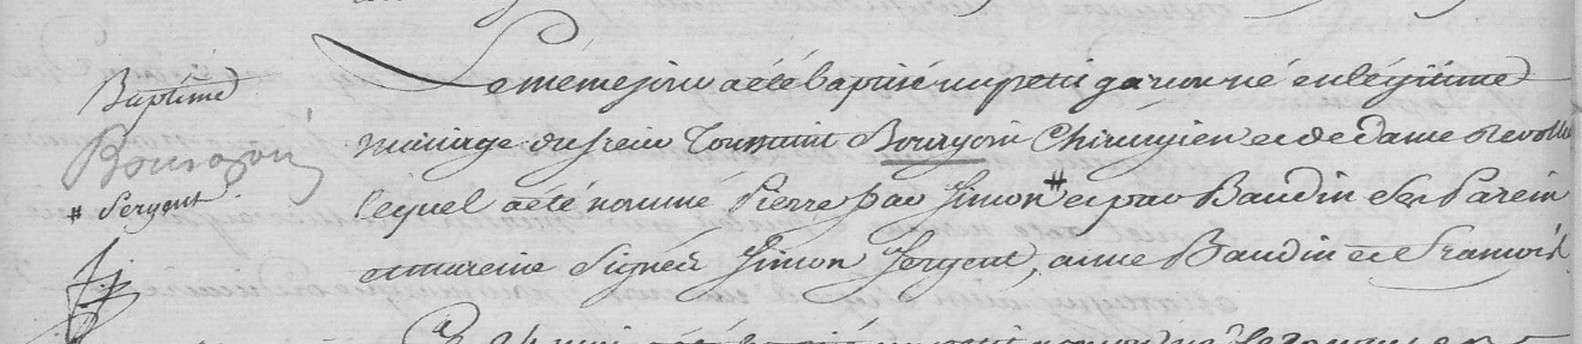 Baptême
Bourgoin
# Sergent
Le même jour a été baptisé un petit garçon né en légitime
mariage du sieur Toussaint Bourgoin Chirurgien et de dame Revolle
lequel a été nommé Pierre par Simon # et par Baudin ses Parein
et mareine Signés Simon Sergent, anne Baudin et François